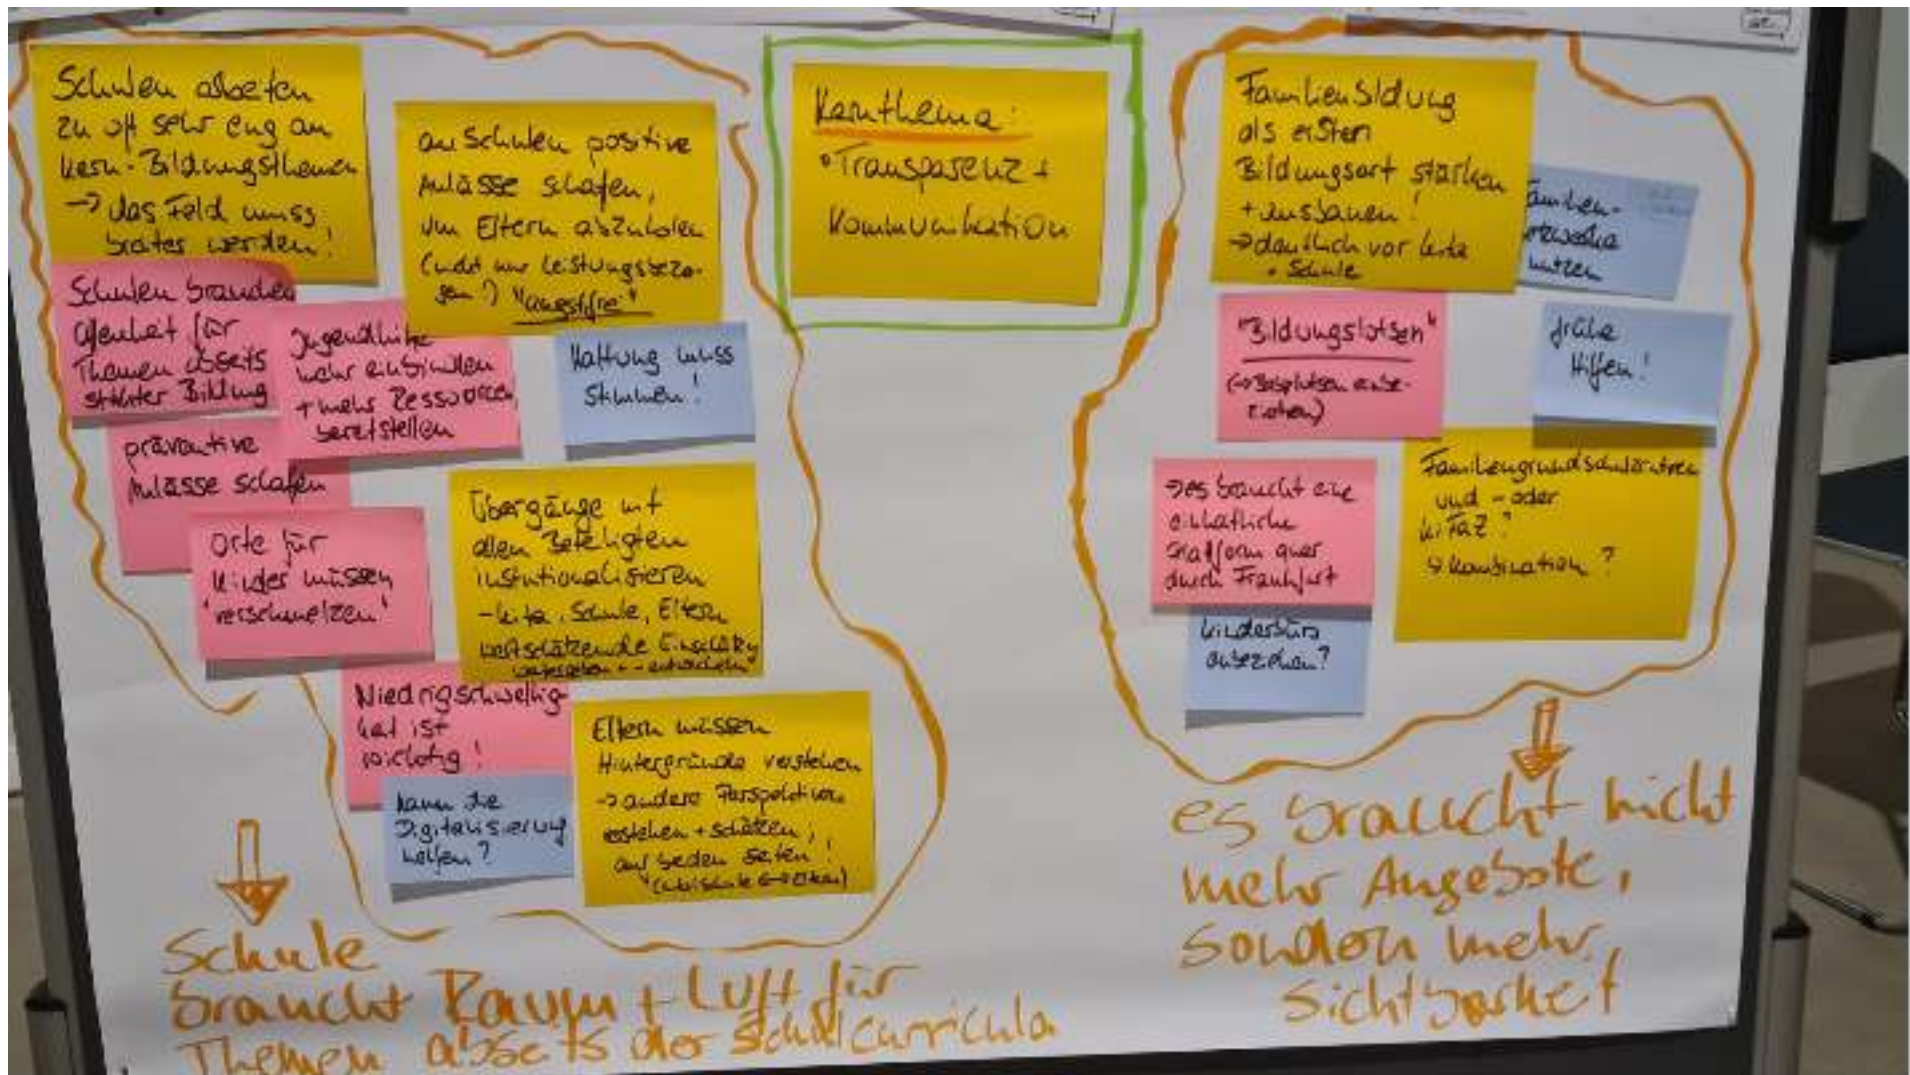 Schulen arbeiten
zu oft sehr eng an
Kern-Bildungsthemen
→ das Feld muss
breiter werden!
an Schulen positive
Anlässe schafen,
um Eltern abzuholen
(nicht nur leistungsbezo-
gen!) "angstfrei"
Schulen brauchen
Offenheit für
Themen abseits
strikter Bildung
Jugendhilfe
mehr einbinden
+ mehr Ressourcen
bereitstellen
Haltung muss
stimmen!
präventive
Anlässe schafen
Orte für
Kinder müssen
'verschmelzen'
Übergänge mit
allen Beteiligten
institutionalisieren
- Kita, Schule, Eltern
wertschätzende Einschätzg
weitergeben + -entwickeln
Niedrigschwellig-
keit ist
wichtig!
kann die
Digitalisierung
helfen?
Eltern müssen
Hintergründe verstehen
→ andere Perspektiven
verstehen + schätzen,
auf beiden Seiten!
Schule
braucht Raum + Luft für
Themen abseits der Schulcurricula
Kernthema:
• Transparenz +
Kommunikation
Familienbildung
als ersten
Bildungsort stärken
+ ausbauen!
→ deutlich vor Kita
+ Schule
nutzen
"Bildungslotsen"
frühe
Hilfen!
→ es braucht eine
einheitliche
Plattform quer
durch Frankfurt
Familiengrundschulzentren
und - oder
KiFaZ?
↳ Kombination?
Kinderbüro
einbeziehen?
es braucht nicht
mehr Angebote,
sondern mehr
Sichtbarkeit